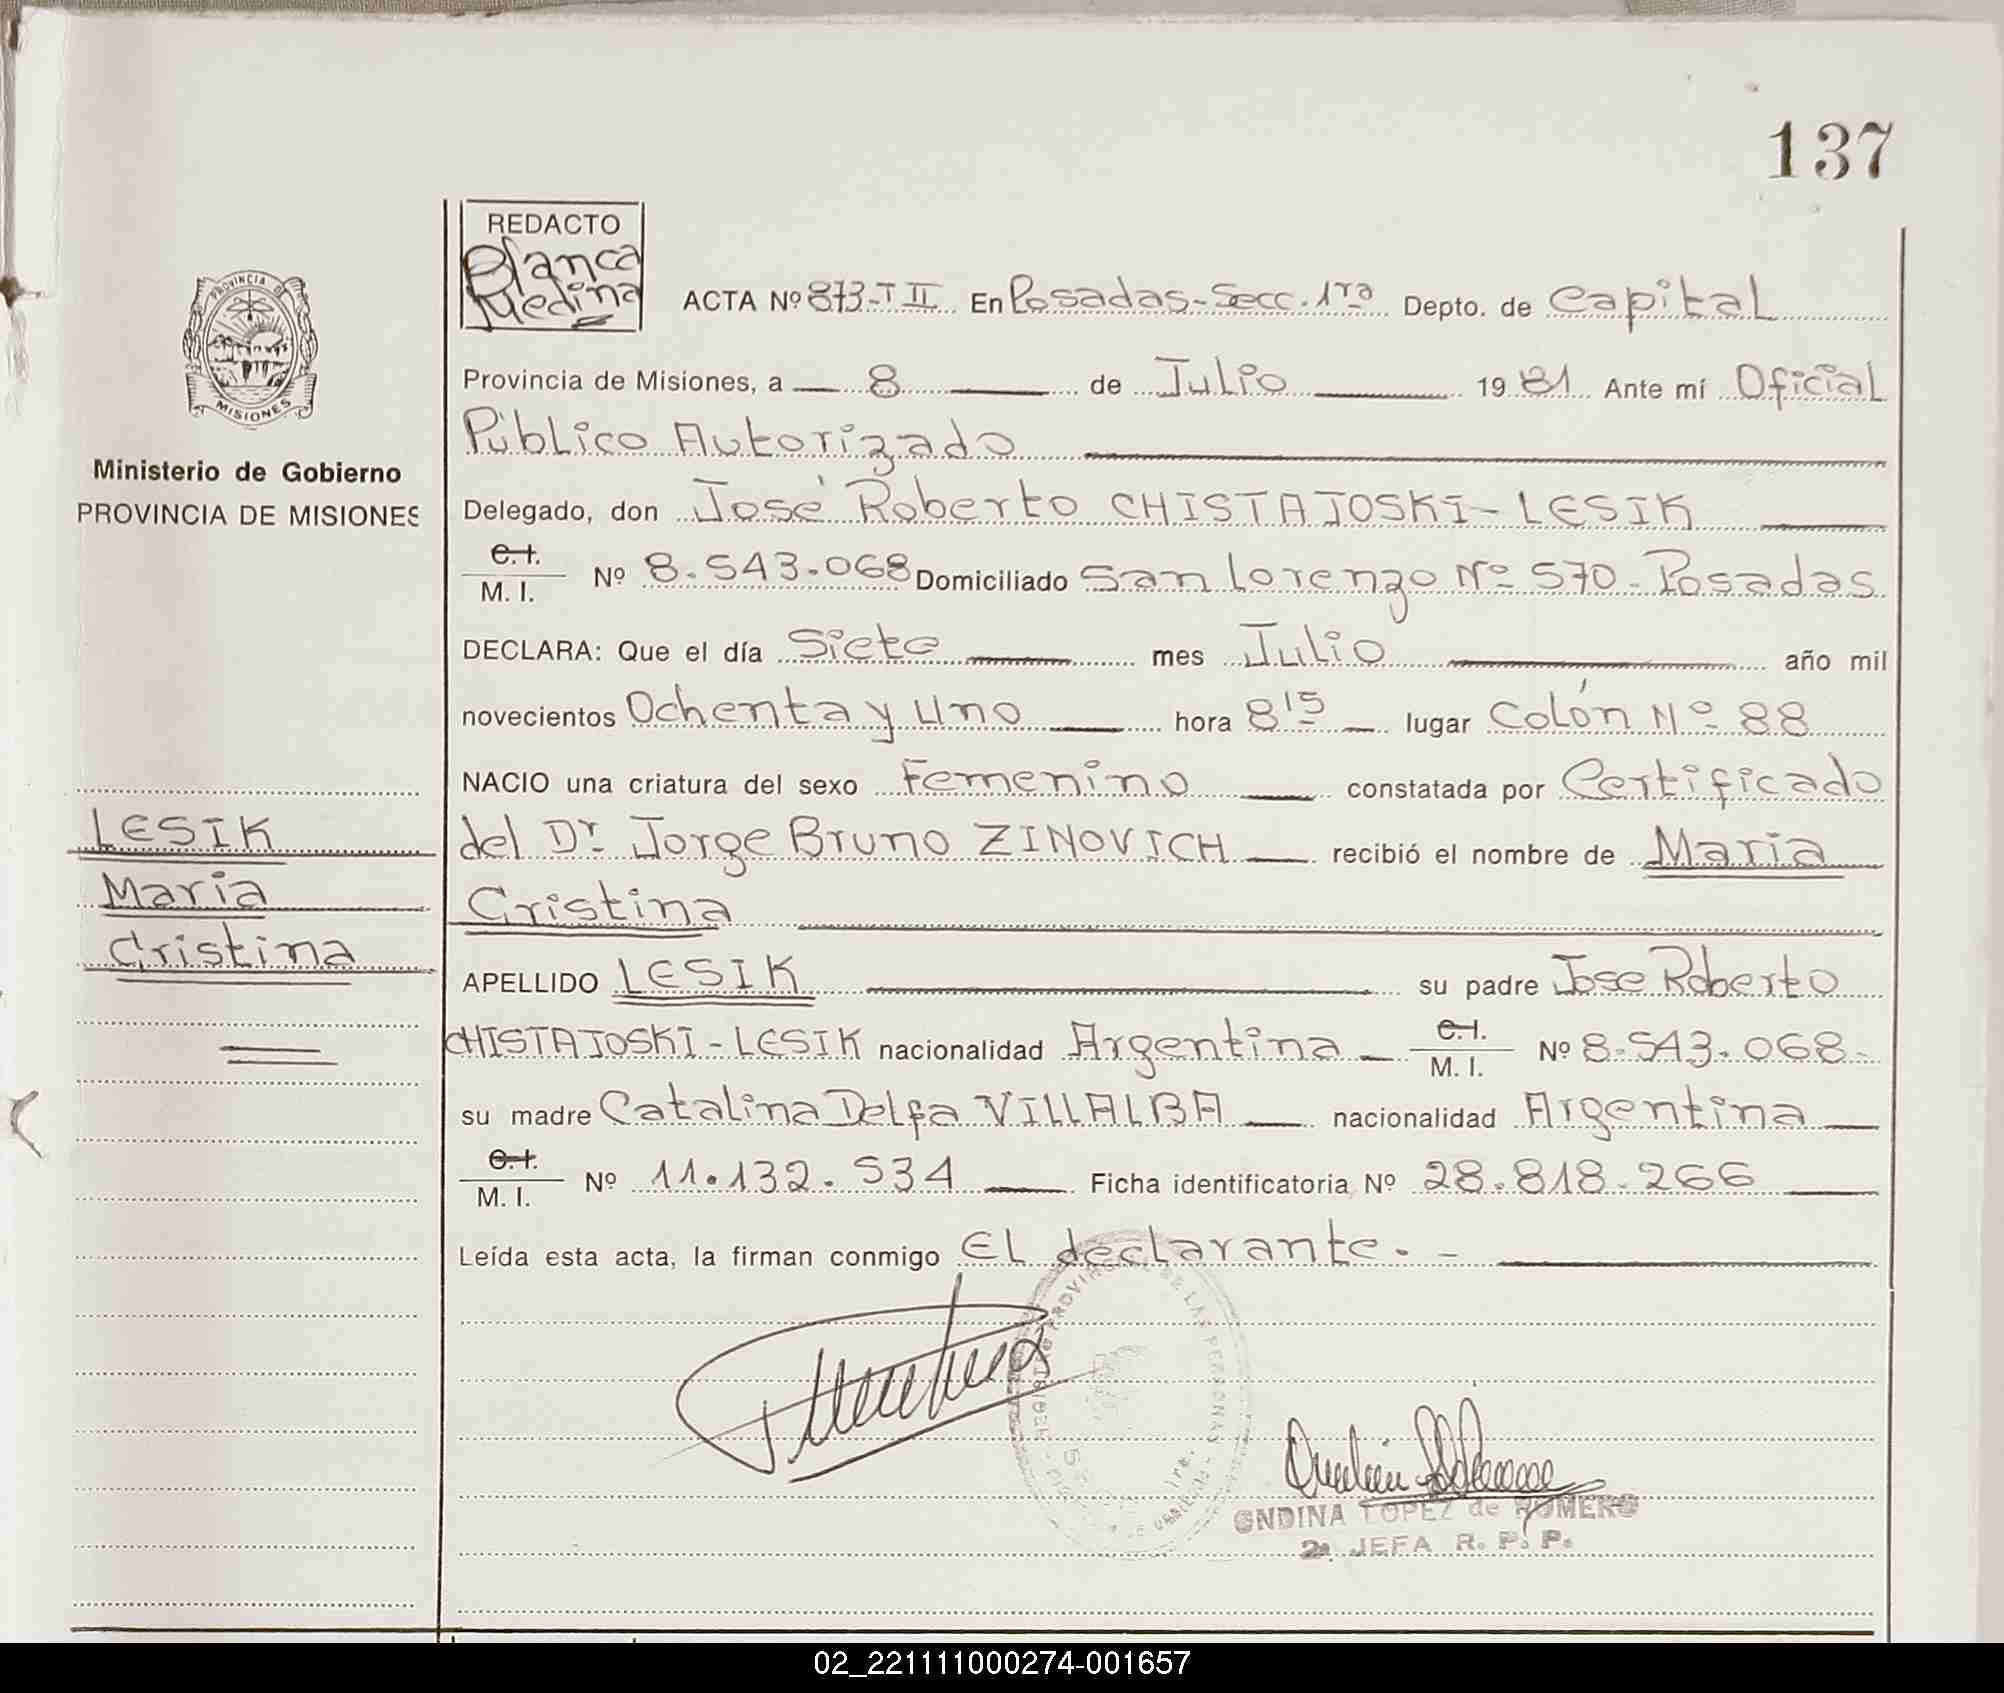 137
REDACTO
Blanca
Medina
PROVINCIA DE
MISIONES
Ministerio de Gobierno
PROVINCIA DE MISIONES
ACTA Nº 873-T II En Posadas-Secc. 1ra Depto. de Capital
Provincia de Misiones, a 8 de Julio 1981 Ante mí Oficial
Público Autorizado
Delegado, don José Roberto CHISTAJOSKI-LESIK
C.I.
M. I. Nº 8.543.068 Domiciliado San Lorenzo Nº 570-Posadas
DECLARA: Que el día Siete mes Julio año mil
novecientos Ochenta y Uno hora 8 15 lugar Colón Nº 88
NACIO una criatura del sexo Femenino constatada por Certificado
del Dr Jorge Bruno ZINOVICH recibió el nombre de Maria
Cristina
LESIK
Maria
Cristina
APELLIDO LESIK su padre Jose Roberto
CHISTAJOSKI-LESIK nacionalidad Argentina C.I.
M. I. Nº 8.543.068-
su madre Catalina Delfa VILLALBA nacionalidad Argentina
C.I.
M. I. Nº 11.132.534 Ficha identificatoria Nº 28.818.266
Leída esta acta, la firman conmigo El declarante.-
PROVINCIAL DE LAS PERSONAS
1ra.
ONDINA LOPEZ de ROMERO
2a. JEFA R. P. P.
02_221111000274-001657